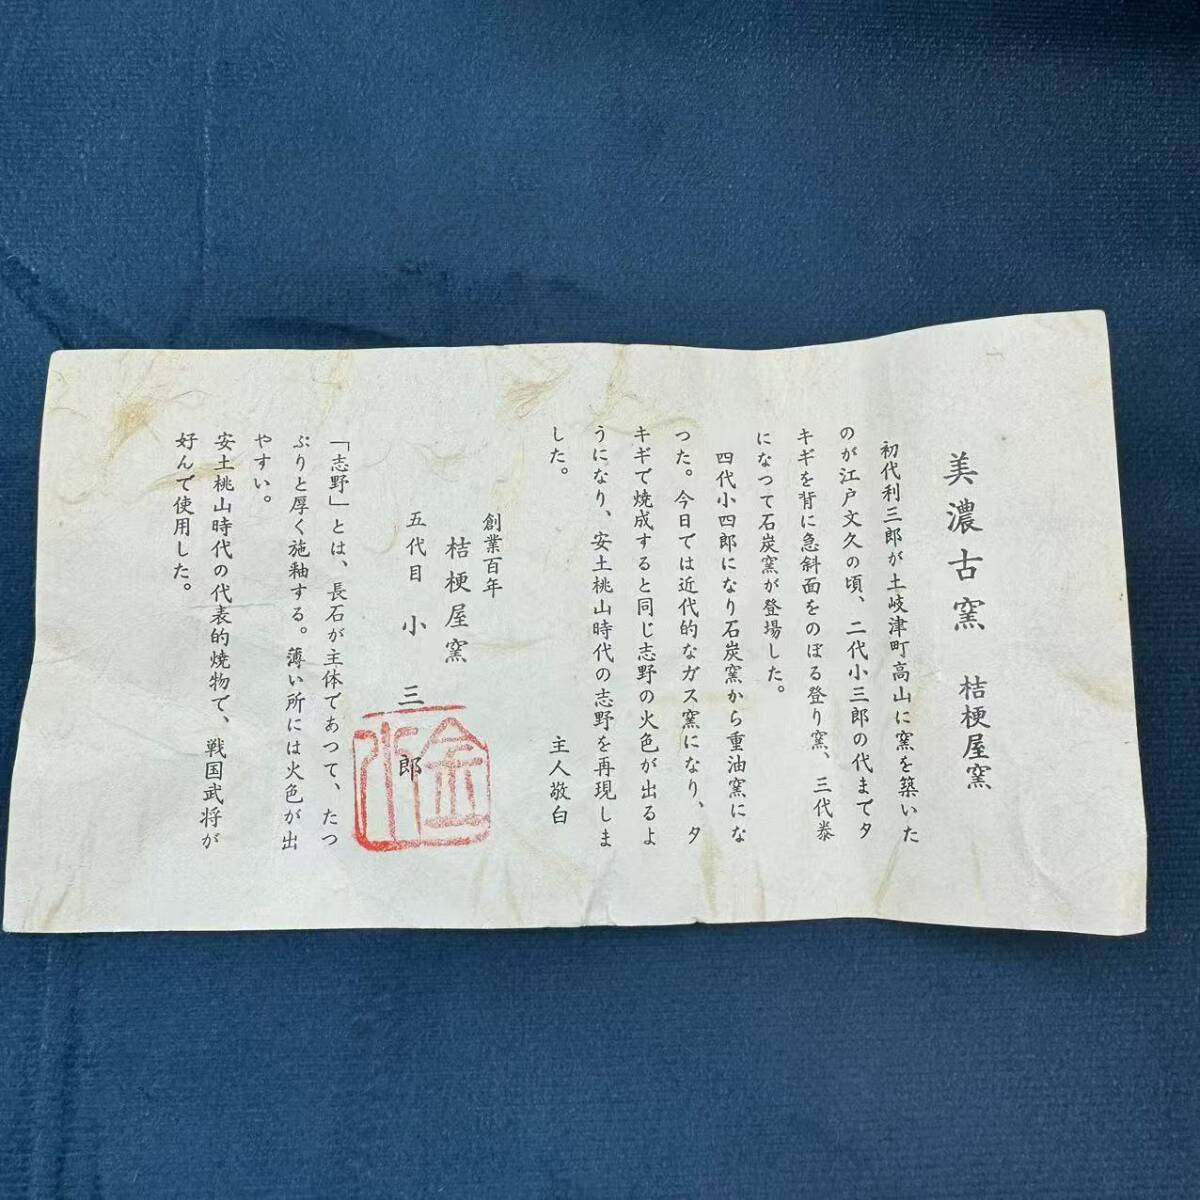 美濃古窯　桔梗屋窯
初代利三郎が土岐津町高山に窯を築いた
のが江戸文久の頃、二代小三郎の代までタ
キギを背に急斜面をのぼる登り窯、三代泰
になつて石炭窯が登場した。
四代小四郎になり石炭窯から重油窯にな
つた。今日では近代的なガス窯になり、タ
キギで焼成すると同じ志野の火色が出るよ
うになり、安土桃山時代の志野を再現しま
した。
主人敬白
創業百年
桔梗屋窯
五代目　小三郎
「志野」とは、長石が主体であつて、たつ
ぷりと厚く施釉する。薄い所には火色が出
やすい。
安土桃山時代の代表的焼物で、戦国武将が
好んで使用した。